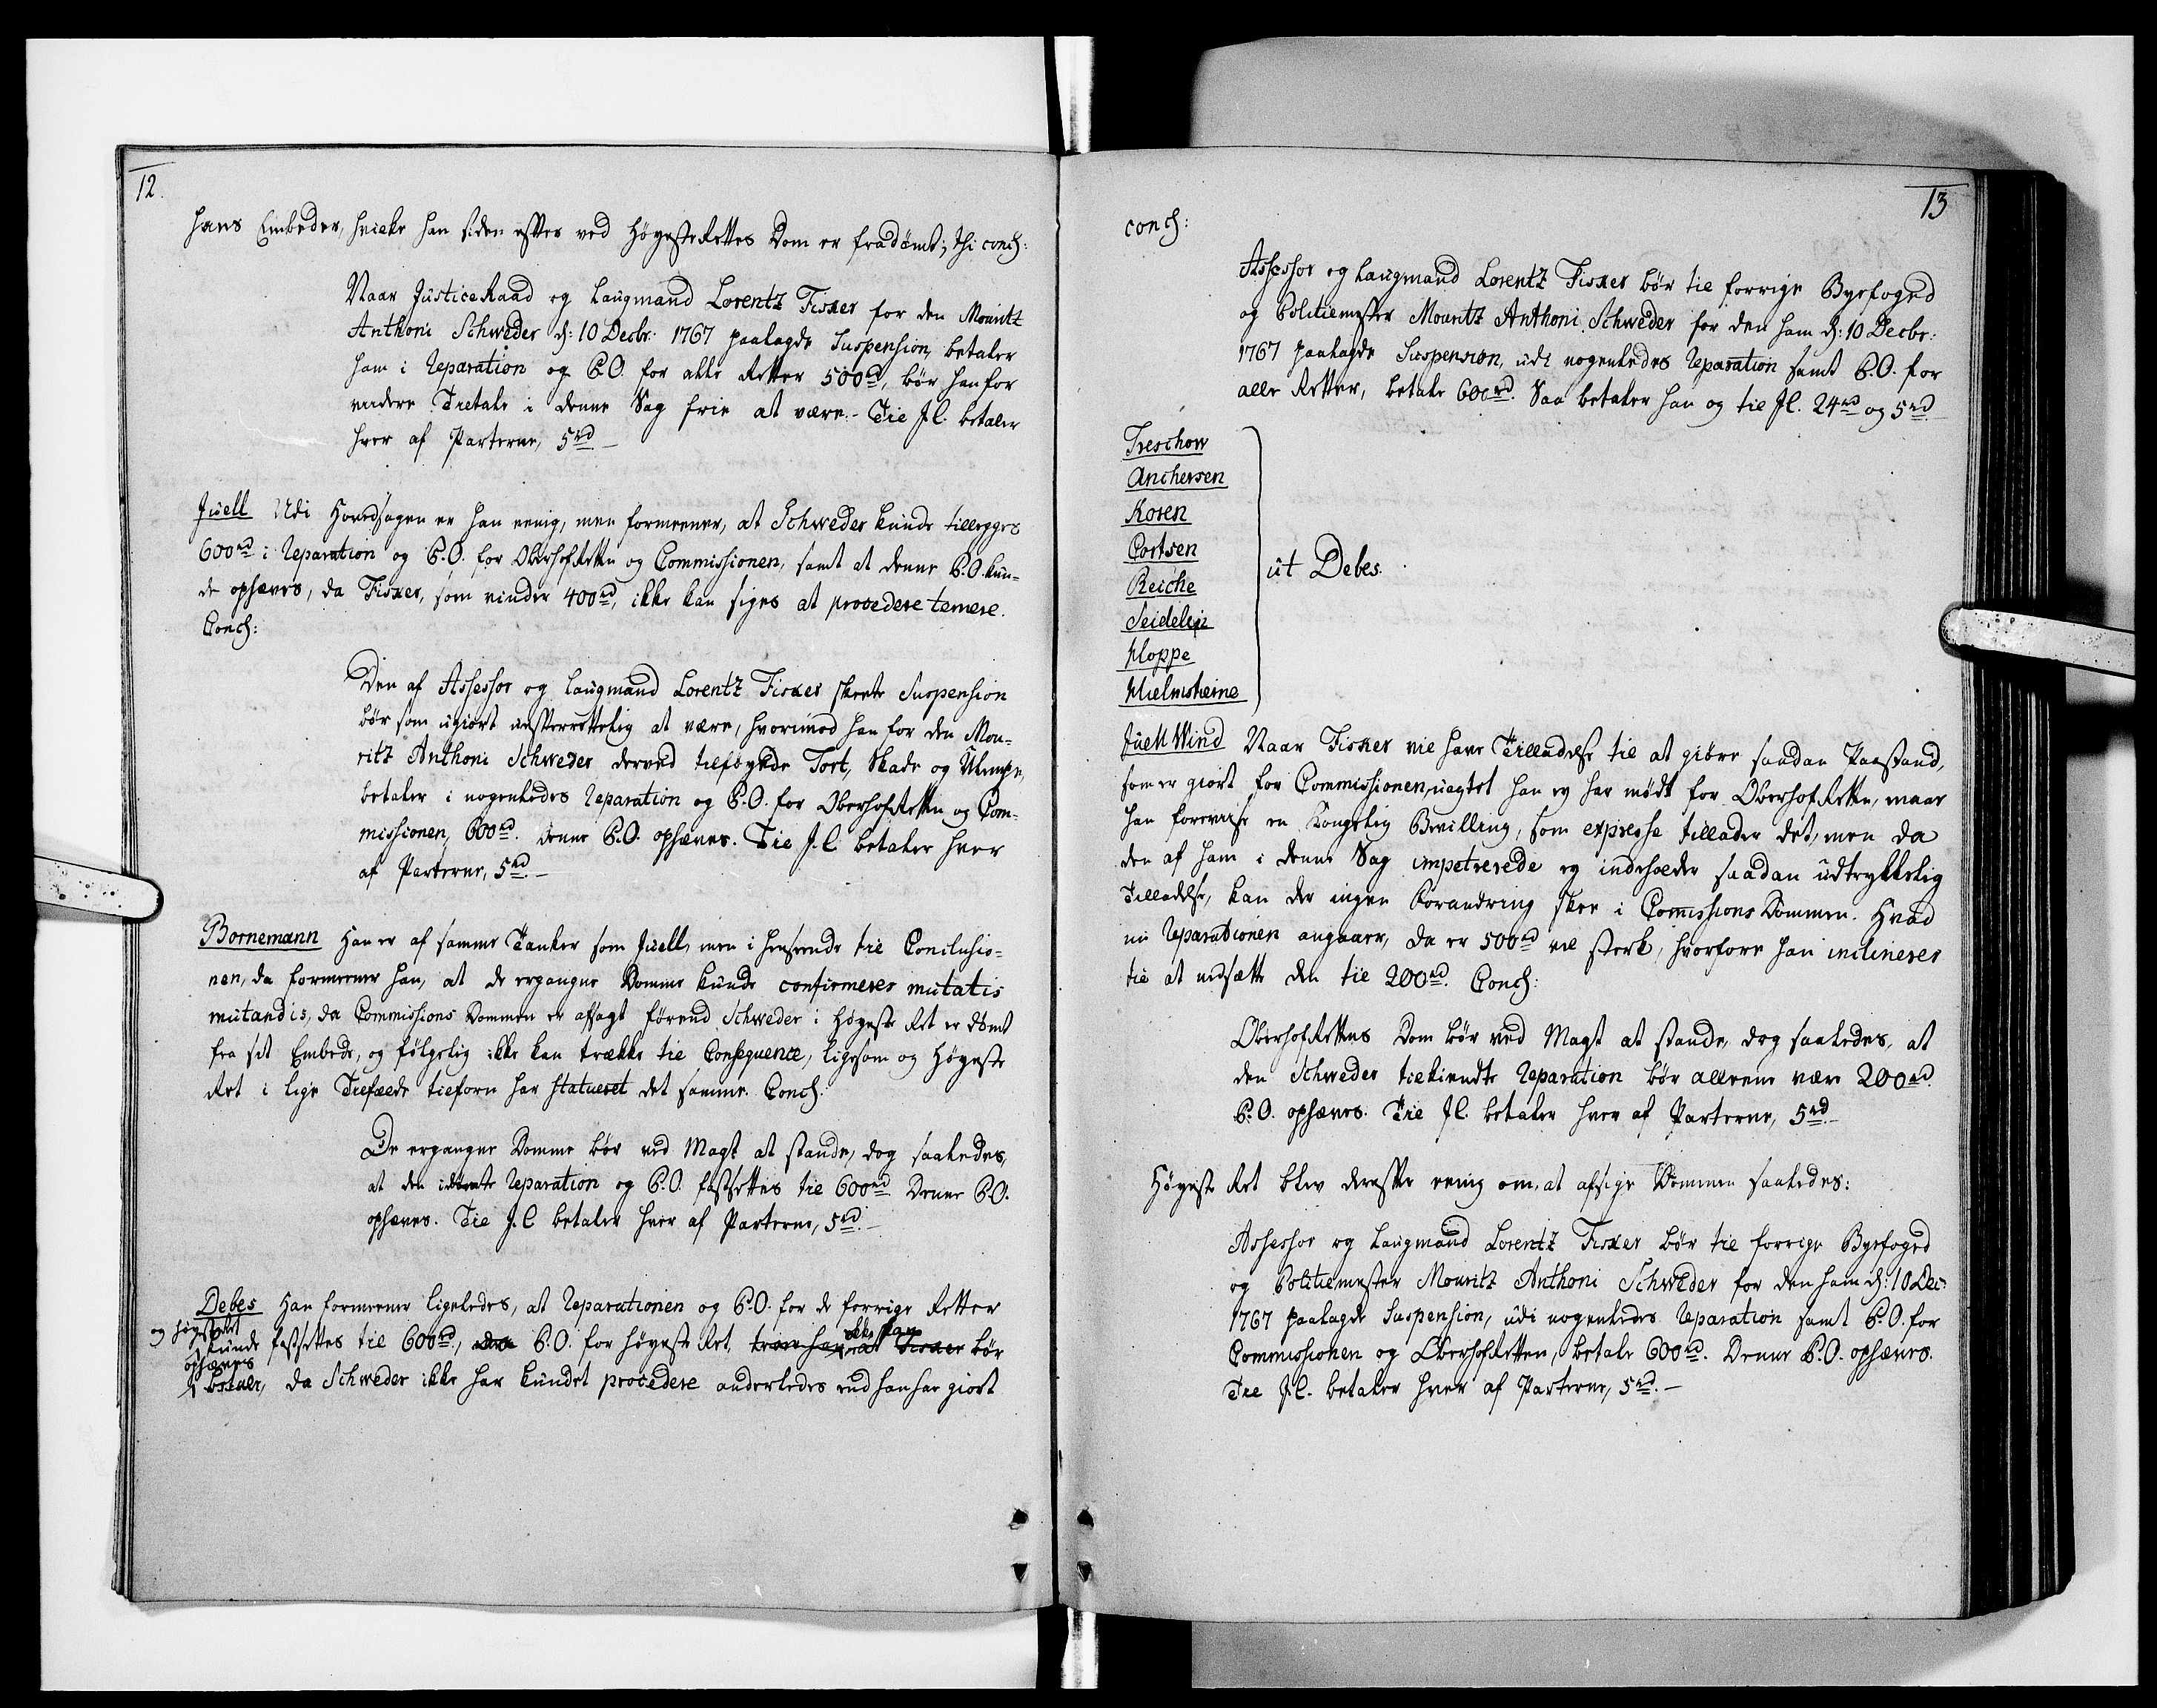 12.
hans Embeder, hvilke han siden efter ved HøyesteRettes Dom er fradømt; thi concl:
Naar JusticeRaad og Laugmand Lorentz Fisker for den Mouritz
Anthoni Schweder d: 10 Decbr: 1767 paalagde Suspension, betaler
ham i Reparation og P.O. for alle Retter 500rd, bør han for
videre Tiltale i denne Sag frie at være. Til J.C. betaler
hver af Parterne, 5rd
Juell Udi Hovedsagen er han eenig, men formeener, at Schweder kunde tillegges
600rd i Reparation og P.O. for OberhofRetten og Commissionen, samt at denne P.O. kun-
de ophæves, da Fisker, som vinder 400rd, ikke kan siges at procedere temere.
Concl:
Den af Assessor og Laugmand Lorentz Fisker skeete Suspension
bør som ugiort ansees at være, hvorimod han for den Mou-
ritz Anthoni Schweder derved tilføyede Tort, Skade og Ulempe,
betaler i nogenledes Reparation og P.O. for OberhofRetten og Com-
missionen, 600rd. Denne P.O. ophæves. Til J.C. betaler hver
af Parterne, 5rd.
Bornemann Han er af samme Tanker som Juell, men i henseende til Conclusio-
nen, da formeener han, at de ergangne Domme kunde confirmeres mutatis
mutandis, da Commissions Dommen er afsagt førend Schweder i Høyeste Ret er dømt
fra sit Embede, og følgelig ikke kan trække til Consequence, ligesom og Høyeste
Ret i lige Tilfælde tilforn har statueret det samme. Concl.
De ergangne Domme bør ved Magt at stande, dog saaledes,
at den idømte Reparation og P.O. fastsettes til 600rd Denne P.O.
ophæves. Til J.C betaler hver af Parterne, 5rd.
Debes Han formeener ligeledes, at Reparationen og P.O. for de forrige Retter
og høystens
kunde fastsettes til 600rd, P.O. for Høyeste Ret, Fisker bør
ophæves
betale, da Schweder ikke har kundet procedere anderledes end han har giort
13
concl:
Assessor og Laugmand Lorentz Fisker bør til forrige Byefoged
og Politiemester Mouritz Anthoni Schweder for den ham d: 10 Decbr:
1767 paalagde Suspension, udi nogenledes Reparation samt P.O. for
alle Retter, betale 600rd. Saa betaler han og til J.C. 24rd og 5rd
Treschow
Anchersen
Rosen
Cortsen
Reiche
Seidelin
Kloppe
Hielmstierne
ut Debes.
Juell Wind Naar Fisker vil have Tilladelse til at giøre saadan Paastand,
som er giort for Commissionen, uagtet han ey har mødt for OberhofRetten, maae
han foreviise en Kongelig Bevilling, som expresse tillader det, men da
den af ham i denne Sag impetrerede ey indeholder saadan udtrykkelig
Tilladelse, kan der ingen Forandring skee i Commissions Dommen. Hvad
nu Reparationen angaaer, da er 500rd vel sterk, hvorfore han inclinerer
til at nedsætte den til 200rd. Concl:
OberhofRettens Dom bør ved Magt at stande, dog saaledes, at
den Schweder tilkiendte Reparation bør alleene være 200rd.
P.O. ophæves. Til J.C. betaler hver af Parterne, 5rd.
Høyeste Ret blev derefter eenig om, at afsige Dommen saaledes:
Assessor og Laugmand Lorentz Fisker bør til forrige Byefoged
og Politiemester Mouritz Anthoni Schweder for den ham d: 10 Dec:
1767 paalagde Suspension, udi nogenledes Reparation samt P.O. for
Commissionen og OberhofRetten, betale 600rd. Denne P.O. ophæves.
Til J.C. betaler hver af Parterne, 5rd.